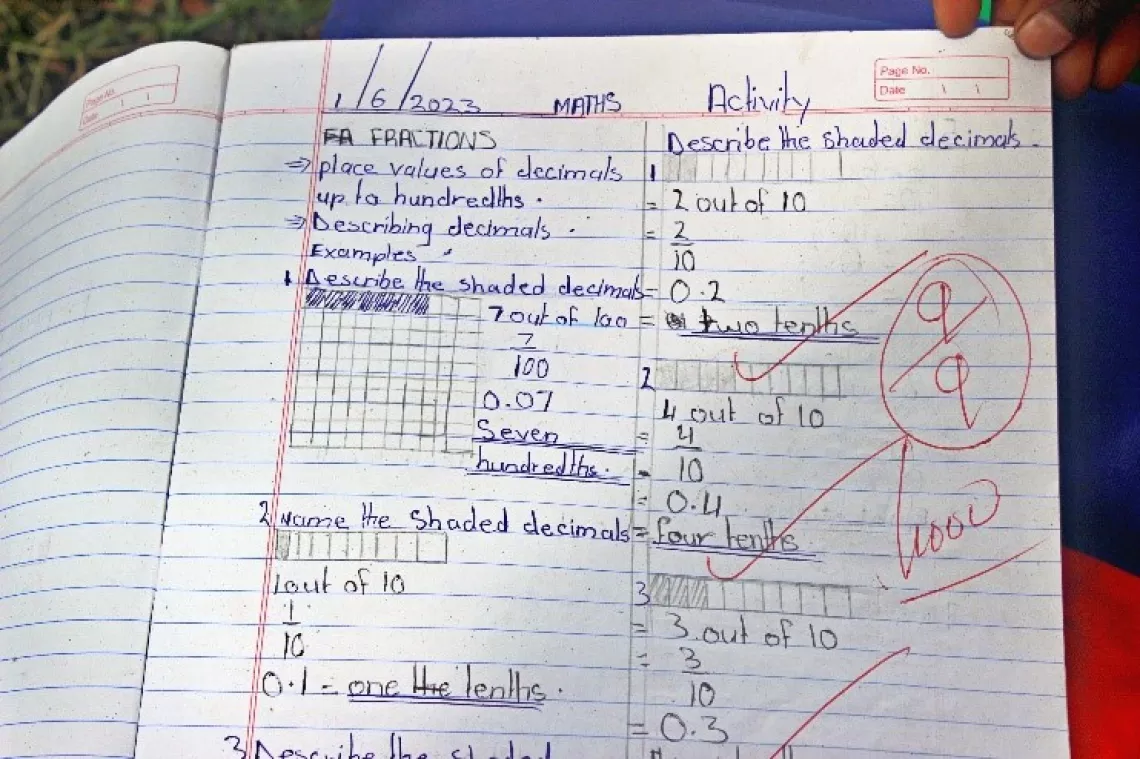 Page No.
Date
Page No.
Date
1/6/2023 MATHS Activity
FRACTIONS
⇒ place values of decimals
up to hundredths.
⇒ Describing decimals.
Examples
1. Describe the shaded decimals
7 out of 100
7
100
0.07
Seven
hundredths.
2 Name the shaded decimals
1 out of 10
1
10
0.1 = one the tenths.
3 Describe the shaded
Describe the shaded decimals.
1
= 2 out of 10
= 2
10
= 0.2
= two tenths
2
4 out of 10
= 4
10
= 0.4
= four tenths
3
= 3 out of 10
= 3
10
= 0.3
9/9